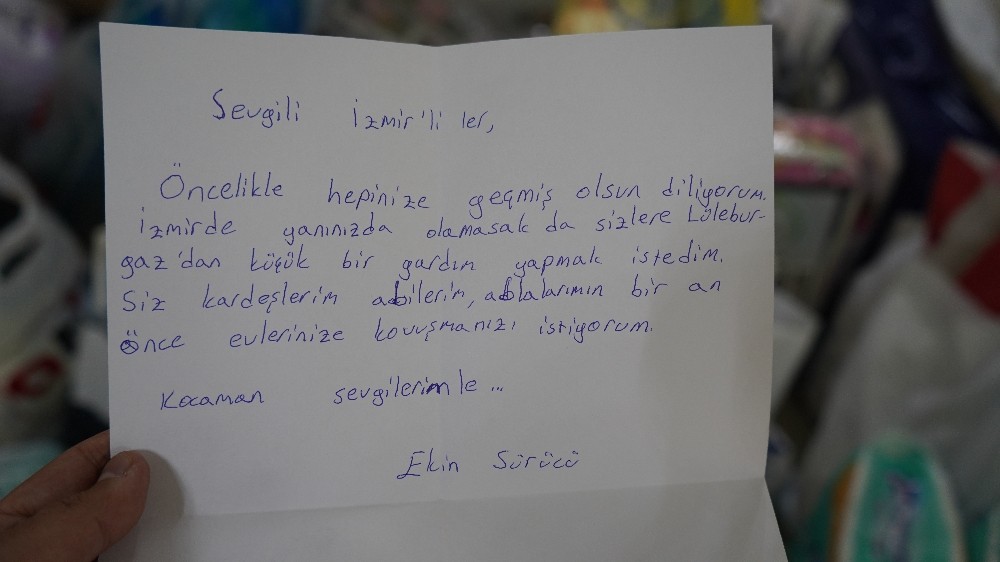 Sevgili İzmir'li ler,
Öncelikle hepinize geçmiş olsun diliyorum.
İzmirde yanınızda olamasak da sizlere Lülebur-
gaz'dan küçük bir yardım yapmak istedim.
Siz kardeşlerim abilerim, ablalarımın bir an
önce evlerinize kovuşmanızı istiyorum.
Kocaman sevgilerimle...
Ekin Sürücü